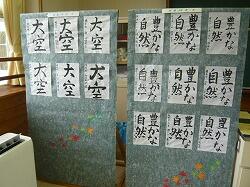 大空
大空
大空
大空
大空
大空
豊かな
自然
豊かな
自然
豊かな
自然
豊かな
自然
豊かな
自然
豊かな
自然
豊かな
自然
豊かな
自然
豊かな
自然